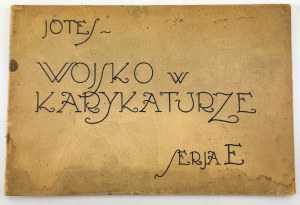 JOTES~
WOJSKO W
KARYKATURZE
SERJA E